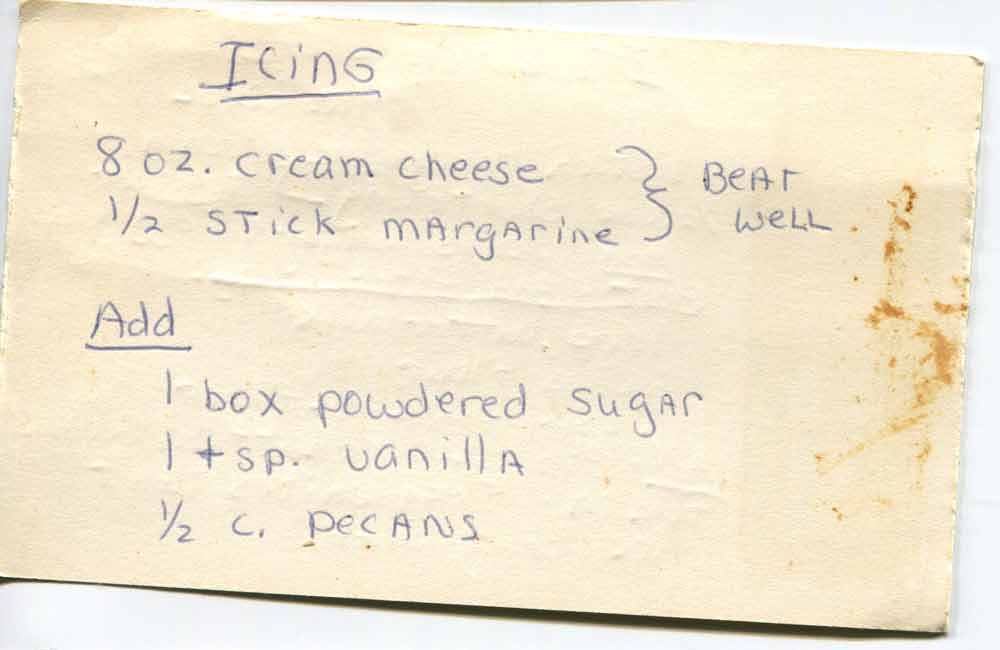 Icing
8 oz. cream cheese } Beat
1/2 stick margarine } well
Add
1 box powdered sugar
1 tsp. vanilla
1/2 c. pecans